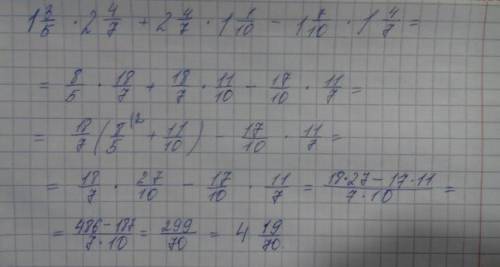 1 3/5 · 2 4/7 + 2 4/7 · 1 1/10 - 1 7/10 · 1 4/7 =
= 8/5 · 18/7 + 18/7 · 11/10 - 17/10 · 11/7 =
= 18/7 (8/5 \2 + 11/10) - 17/10 · 11/7 =
= 18/7 · 27/10 - 17/10 · 11/7 = (18·27-17·11)/(7·10) =
= (486-187)/(7·10) = 299/70 = 4 19/70.